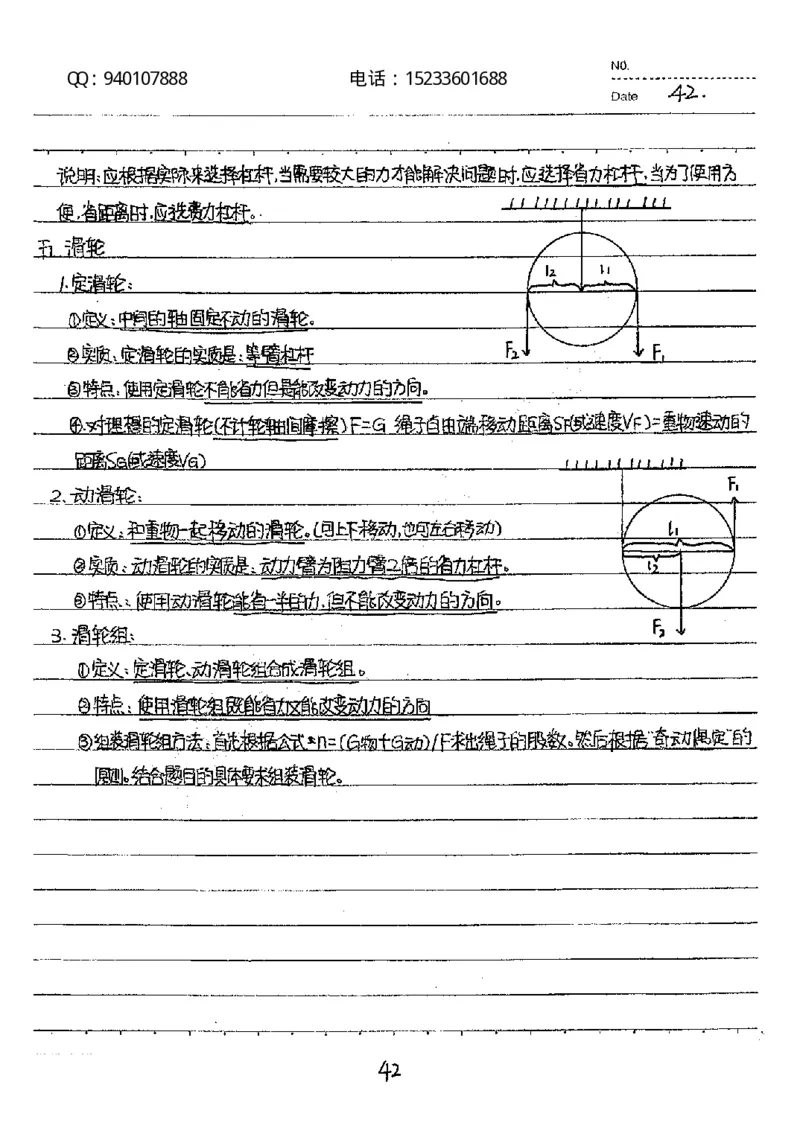 NO.
QQ：940107888 电话：15233601688
Date 42.
说明：应根据实际来选择杠杆，当需要较大的力才能解决问题时，应选择省力杠杆，当为了使用方
便，省距离时，应选费力杠杆。
五、滑轮
1.定滑轮：
l2 l1
①定义：中间的轴固定不动的滑轮。
②实质：定滑轮的实质是：等臂杠杆
F2 F1
③特点：使用定滑轮不能省力但是能改变动力的方向。
④对理想的定滑轮（不计轮轴间摩擦）F=G 绳子自由端移动距离SF(或速度VF)=重物移动的
距离SG(或速度VG)
F1
2.动滑轮：
①定义：和重物一起移动的滑轮。（可上下移动，也可左右移动）
l1
②实质：动滑轮的实质是：动力臂为阻力臂2倍的省力杠杆。
l2
③特点：使用动滑轮能省一半的力，但不能改变动力的方向。
F2
3.滑轮组：
①定义：定滑轮、动滑轮组合成滑轮组。
②特点：使用滑轮组既能省力又能改变动力的方向
③组装滑轮组方法：首先根据公式n=(G物+G动)/F求出绳子的股数。然后根据“奇动偶定”的
原则。结合题目的具体要求组装滑轮。
42